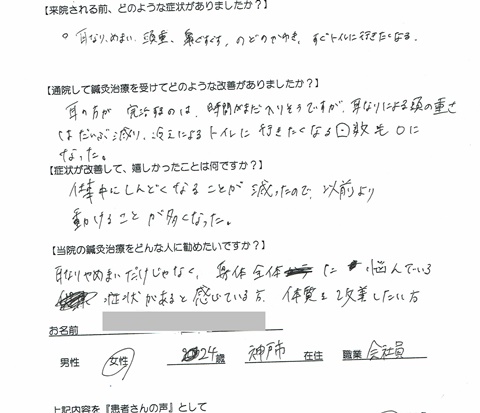 【来院される前、どのような症状がありましたか?】
○ 耳なり、めまい、頭重、鼻ぐずぐず、のどのかゆさ、すぐトイレに行きたくなる。
【通院して鍼灸治療を受けてどのような改善がありましたか?】
耳の方が完治するのは、時間がまだ入りそうですが、耳なりによる頭の重さ
はだいぶ減り、冷えによるトイレに行きたくなる回数も0に
なった。
【症状が改善して、嬉しかったことは何ですか?】
仕事中にしんどくなることが減ったので、以前より
動けることが多くなった。
【当院の鍼灸治療をどんな人に勧めたいですか?】
耳なりやめまいだけじゃなく、身体全体に悩んでいる
症状があると感じている方、体質を改善したい方
お名前
男性 女性 24歳 神戸市 在住 職業 会社員
上記内容を『患者さんの声』として